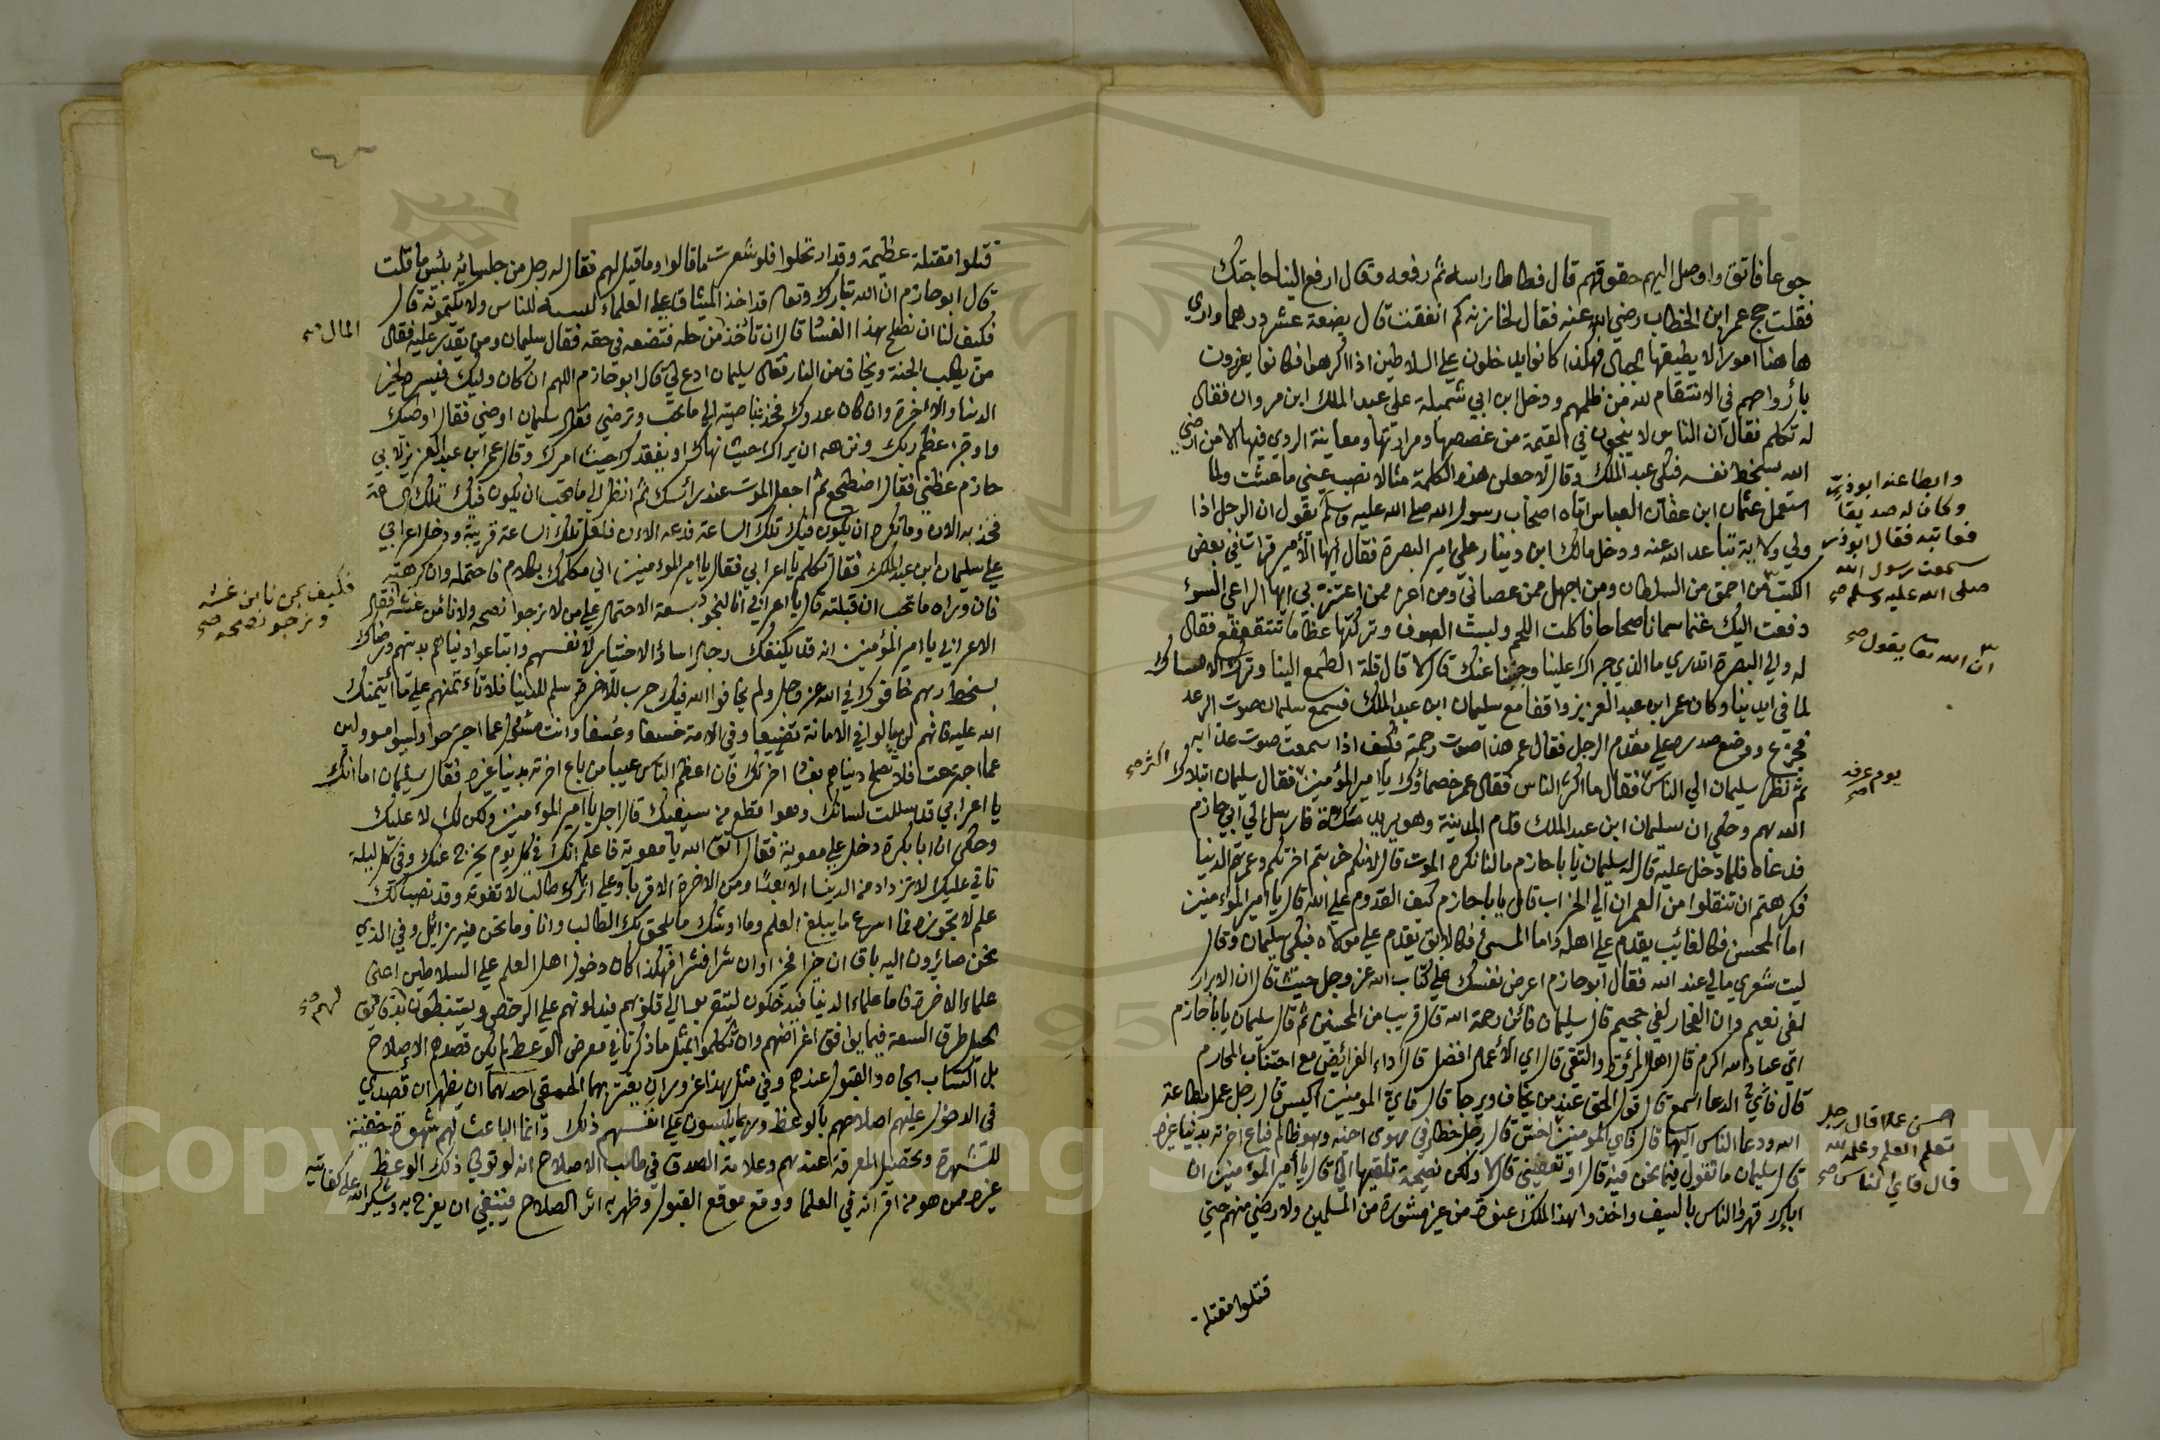 جوعا فاتق الله واوصل اليهم حقوقهم قال فطاطا راسه ثم رفعه وقال ارفع الينا حاجتك
فقلت حج عمر ابن الخطاب رضي الله عنه فقال لخازنه كم انفقت قال بضعة عشر درهما واري
هاهنا امورا لا يطيقها الجمال فهكذا كانوا يدخلون علي السلاطين اذا اكرهوا فكانوا يغررون
بارواحهم في الانتقام لله من ظلمهم ودخل ابن ابي شميلة علي عبد الملك ابن مروان فقال
له تكلم فقال ان الناس لا ينجون في القيمة من غصصها ومرارتها ومعاينة الردي فيها الا من ارضي
الله بسخط نفسه فبكي عبد الملك وقال لاجعلن هذه الكلمة مثالا نصب عيني ما عشت ولما
استعمل عثمان ابن عفان ابن العباس اتاه اصحاب رسول الله صلي الله عليه وسلم يقول ان الرجل اذا
ولي ولاية تباعد الله عنه ودخل مالك ابن دينار علي امير البصرة فقال ايها الامير قرات في بعض
الكتب من احمق من السلطان ومن اجهل ممن عصاني ومن اعز ممن اعتز بي ايها الراعي السوء
دفعت اليك غنما سمانا صحاحا فاكلت اللحم ولبست الصوف وتركتها عظاما تتقعقع فقال
له والي البصرة اتدري ما الذي يجراك علينا وجبننا عنك قال لا قال قلة الطمع الينا وترك الامساك
لما في ايدينا وكان عمر ابن عبد العزيز واقفا مع سليمان ابن عبد الملك فسمع سليمان صوت الرعد
فجزع ووضع صدره علي مقدم الرحل فقال عمر هذا صوت رحمته فكيف اذا سمعت صوت عذابه
ثم نظر سليمان الي الناس فقال ما اكثر الناس فقال عمر خصماؤك يا امير المؤمنين فقال سليمان ابتلاك
الله بهم وحكي ان سليمان ابن عبد الملك قدم المدينة وهو يريد مكة فارسل الي ابي حازم
فدعاه فلما دخل عليه قال له سليمان يا ابا حازم ما لنا نكره الموت قال لانكم خربتم اخرتكم وعمرتم الدنيا
فكرهتم ان تنقلوا من العمران الي الخراب قال يا ابا حازم كيف القدوم علي الله قال يا امير المؤمنين
اما المحسن فكالغائب يقدم علي اهله واما المسئ فكالابق يقدم علي مولاه فبكي سليمان وقال
ليت شعري مالي عند الله فقال ابو حازم اعرض نفسك علي كتاب الله عز وجل حيث قال ان الابرار
لفي نعيم وان الفجار لفي جحيم قال سليمان فاين رحمة الله قال قريب من المحسنين ثم قال سليمان يا ابا حازم
اي عباد الله اكرم قال اهل المروة والتقي قال اي الاعمال افضل قال اداء الفرائض مع اجتناب المحارم
قال فاي الدعا اسمع قال قول الحق عند من يخاف ويرجا قال فاي المومنين اكيس قال رجل عمل بطاعة
الله ودعا الناس اليها قال فاي المومنين اخسر قال رجل خطا في هوي اخيه وهو ظالم فباع اخرته بدنيا غيره
قال سليمان ما تقول فيما نحن فيه قال اوتعفيني قال لا ولكن نصيحة تلقيها الي قال يا امير المؤمنين ان
اباءك قهروا الناس بالسيف واخذوا هذا الملك عنوة من غير مشورة من المسلمين ولا رضي منهم حتي
قتلوا مقتلة
وابطا عنه ابو ذر
وكان له صديقا
فعاتبه فقال ابو ذر
سمعت رسول الله
صلي الله عليه وسلم صح
ان الله تعا يقول صح
اكثر صح
يوم عرفه
صح
احسن عملا قال رجل
تعلم العلم وعلمه لله
قال فاي الناس صح
قتلوا مقتلة عظيمة وقد ارتحلوا فلو شعرت ما قالوا وما قيل لهم فقال له رجل من جلسائه بئس ما قلت
قال ابو حازم ان الله تبارك وتعالي قد اخذ الميثاق علي العلماء ليبيننه للناس ولا يكتمونه قال
فكيف لنا ان نصلح هذا الفساد قال ان تاخذ من حله فتضعه في حقه فقال سليمان ومن يقدر عليه فقال
من يطلب الجنة ويخاف من النار فقال سليمان ادع لي قال ابو حازم اللهم ان كان وليك فيسره لخير
الدنيا والاخرة وان كان عدوك فخذ بناصيته الي ما تحب وترضي فقال سليمان اوصني فقال اوصيك
واوجز عظم ربك ونزهه ان يراك حيث نهاك او يفقدك حيث امرك وقال عمر ابن عبد العزيز لابي
حازم عظني فقال اضطجع ثم اجعل الموت عند رأسك ثم انظر الي ما تحب ان يكون فيك تلك الساعة
فخذ به الان وما تكره ان يكون فيك تلك الساعة فدعه الان فلعل تلك الساعة قريبة ودخل اعرابي
علي سليمان ابن عبد الملك فقال تكلم يا اعرابي فقال يا امير المؤمنين اني مكلمك بكلام فاحتمله وان كرهته
فان وراه ما تحب ان قبلته قال يا اعرابي انا لنجود بسعة الاحتمال علي من لا نرجوا نصحه ولا نامن غشه فقال
الاعرابي يا امير المؤمنين انه قد تكنفك رجال اساؤا الاختيار لانفسهم وابتاعوا دنياهم بدينهم ورضاك
بسخط ربهم خافوك في الله عز وجل ولم يخافوا الله فيك حرب للاخرة سلم للدنيا فلا تاتمنهم علي ما ائتمنك
الله عليه فانهم لن يالوا في الامانة تضييعا وفي الامة خسفا وعسفا وانت مسئول عما اجترحوا وليسوا مسوولين
عما اجترحت فلا تصلح دنياهم بفساد اخرتك فان اعظم الناس عيبا من باع اخرته بدنيا غيره فقال سليمان اما انك
يا اعرابي قد سللت لسانك وهو اقطع من سيفك قال اجل يا امير المؤمنين ولكن لك لا عليك
وحكي ان ابا بكرة دخل علي معوية فقال اتق الله يا معوية فاعلم انك في كل يوم يخرج عنك وفي كل ليلة
تاتي عليك لا تزداد من الدنيا الا بعدا ومن الاخرة الا قربا وعلي اثرك طالب لا تفوته وقد نصب لك
علم لا تجوزه فما اسرع ما يبلغ العلم وما اوشك ما يلحق بك الطالب وانا وما نحن فيه زائل وفي الذي
نحن صايرون اليه باق ان خيرا فخيرا وان شرا فشرا فهكذا كان دخول اهل العلم علي السلاطين اعني
علماء الاخرة فاما علماء الدنيا فيدخلون ليتقربوا الي قلوبهم فيدلونهم علي الرخص ويستنبطون بدقايق
الحيل طرق السعة فيما يوافق اغراضهم وان تكلموا بمثل ما ذكرناه في معرض الوعظ لم يكن قصدهم الاصلاح
بل اكتساب الجاه والقبول عندهم وفي مثل هذا غروران يغتر بهما الحمقي احدهما ان يظهر ان قصدي
في الدخول عليهم اصلاحهم بالوعظ وربما يلبسون علي انفسهم ذلك وانما الباعث لهم شهوة خفية
للشهرة وتحصيل المعرفة عندهم وعلامة الصدق في طالب الاصلاح انه لو تولي ذلك الوعظ
غيره ممن هو من اقرانه في العلما ووقع موقع القبول وظهر به اثر الصلاح فينبغي ان يفرح به وشكر الله علي كفايته
المال صح
فكيف بمن نامن غشه
ونرجو نصحه صح
لهم صح
Copyright King Saud University